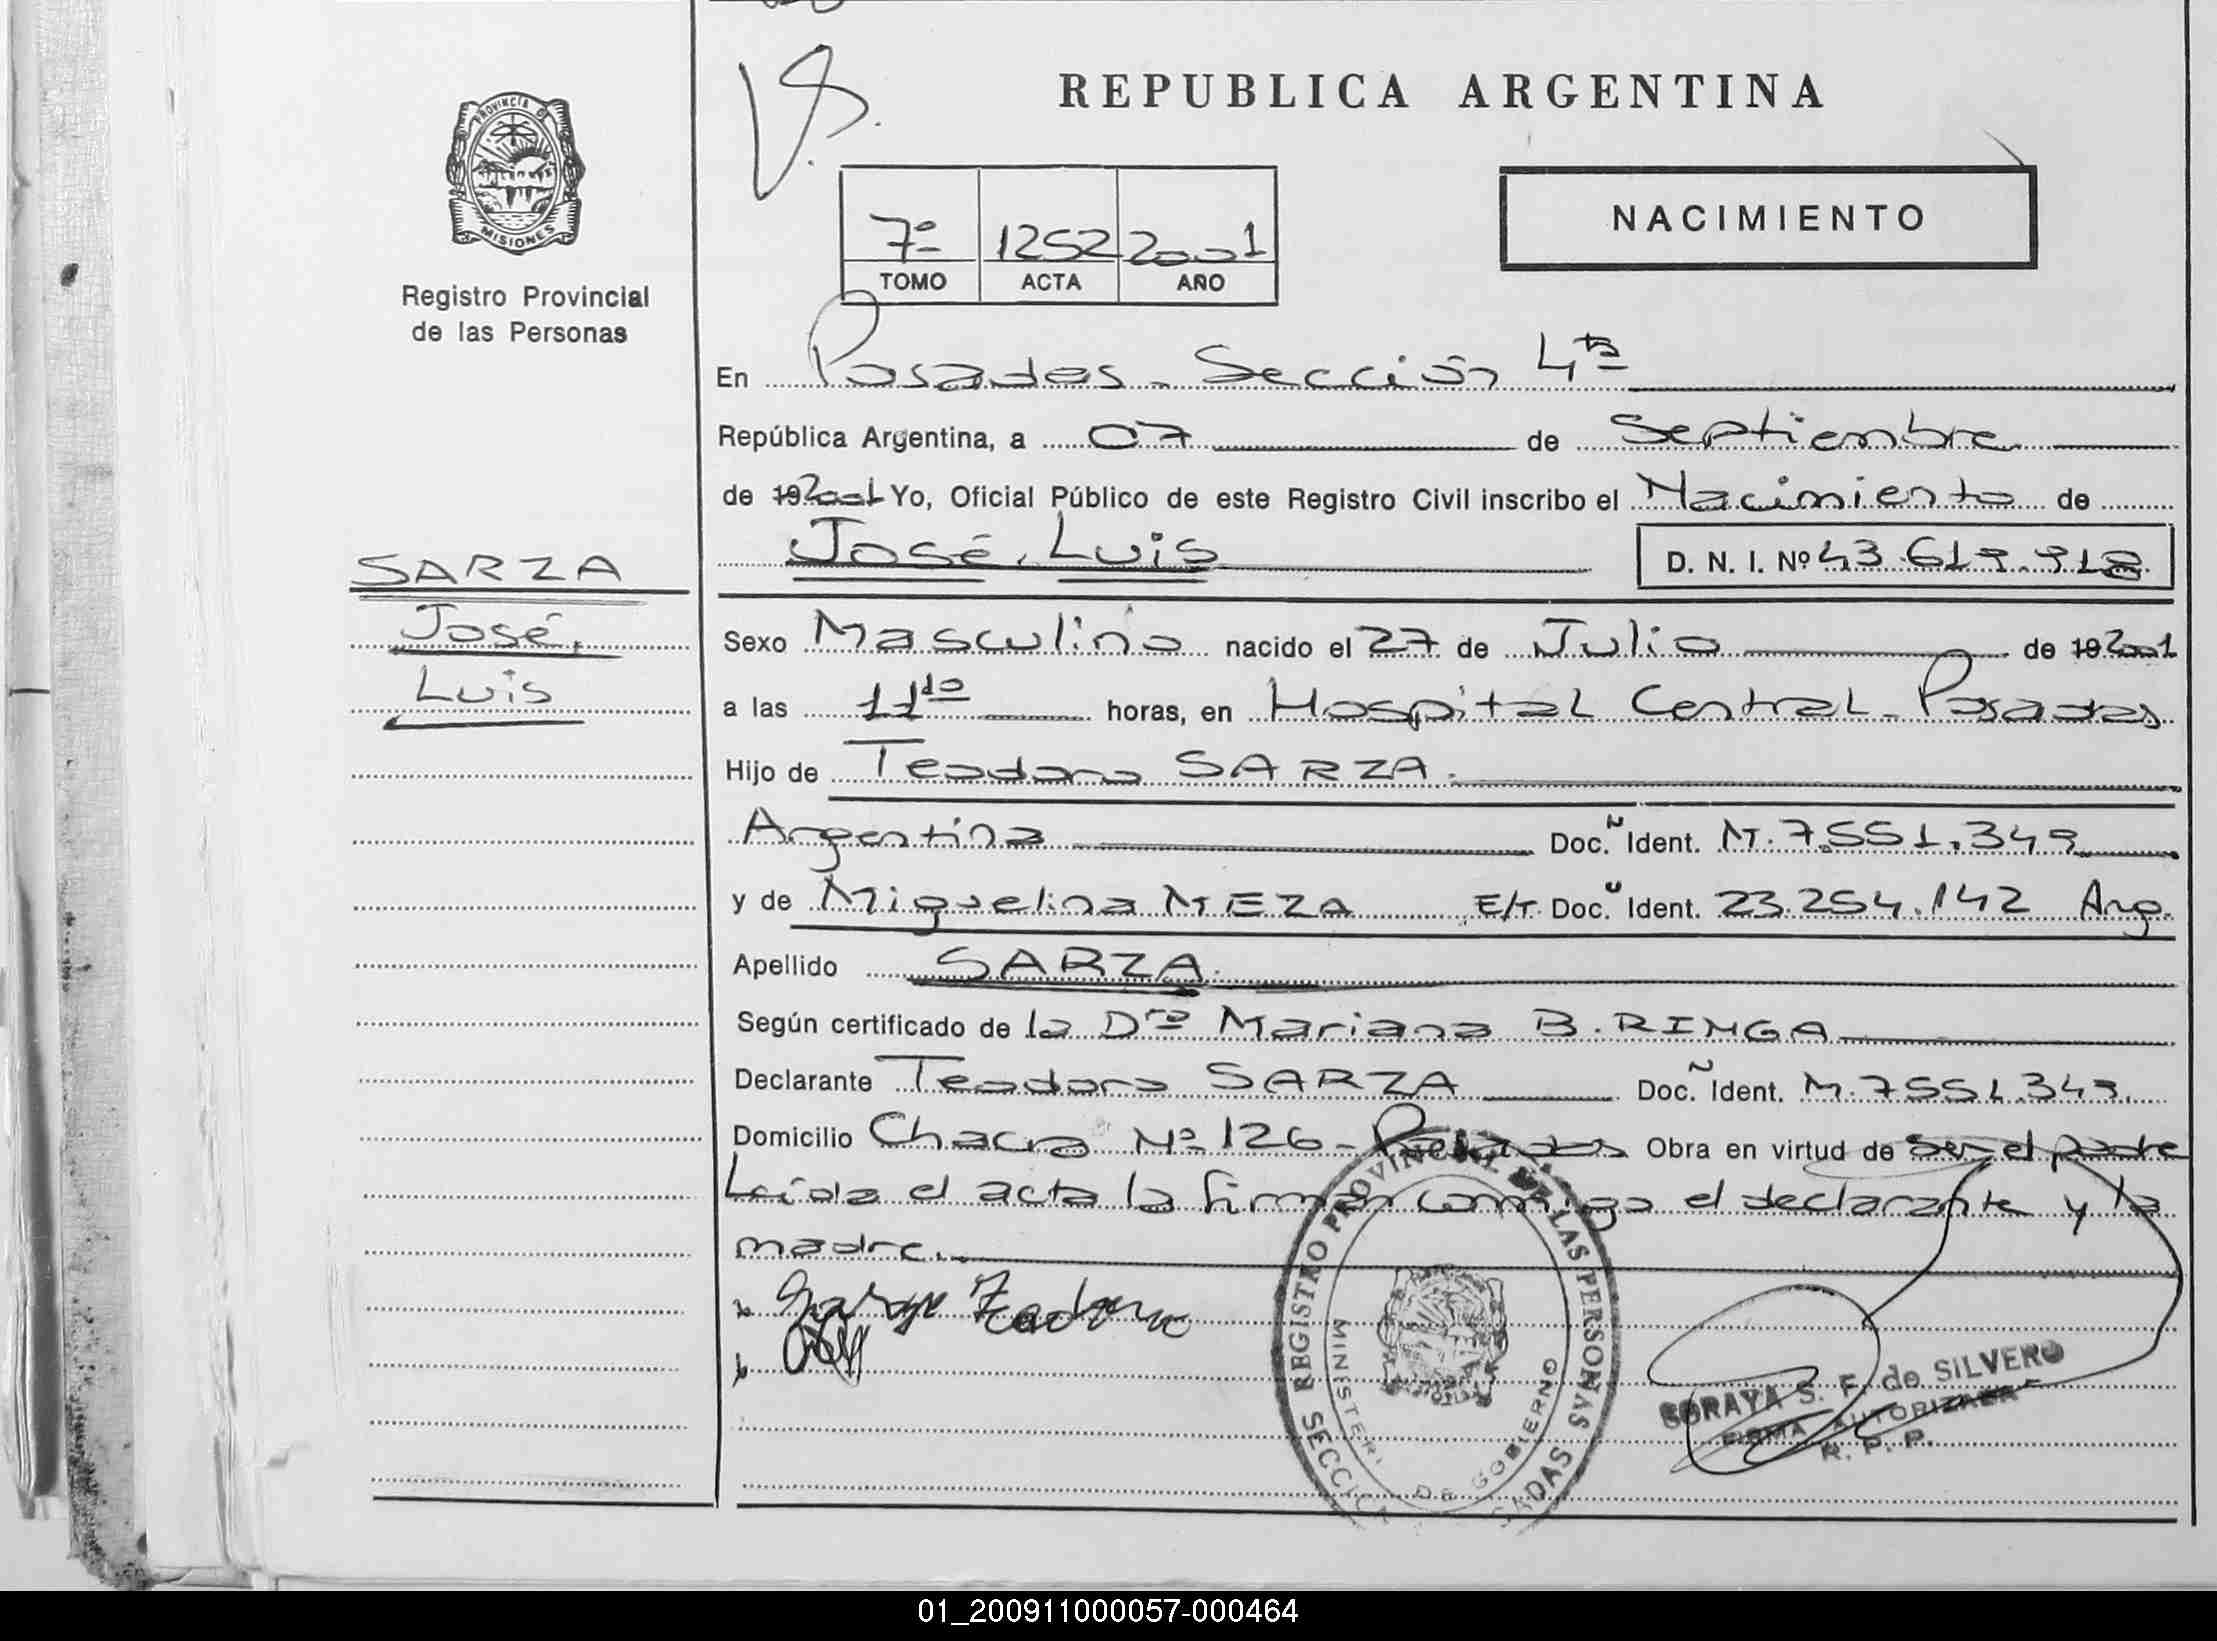 REPUBLICA ARGENTINA
PROVINCIA DE
MISIONES
Registro Provincial
de las Personas
7º 1252 2001
TOMO ACTA AÑO
NACIMIENTO
En Posadas - Sección 4ta
República Argentina, a 07 de Septiembre
de 19 2001 Yo, Oficial Público de este Registro Civil inscribo el Nacimiento de
José, Luis D. N. I. Nº 43.619.918
SARZA
José,
Luis
Sexo Masculino nacido el 27 de Julio de 19 2001
a las 11 horas, en Hospital Central - Posadas
Hijo de Teodoro SARZA.
Argentina Doc. Ident. M. 7.551.349
y de Miguelina MEZA E/T. Doc. Ident. 23.254.142 Arg.
Apellido SARZA.
Según certificado de la Dra Mariana B. RINGA
Declarante Teodoro SARZA Doc. Ident. M. 7551.349.
Domicilio Chacra Nº 126 - Posadas Obra en virtud de ser el padre
Leída el acta la firman conmigo el declarante y la
madre.
REGISTRO PROVINCIAL DE LAS PERSONAS
MINISTERI DE GOBIERNO
SORAYA S. F. de SILVERO
FIRMA AUTORIZADA
R. P. P.
01_200911000057-000464